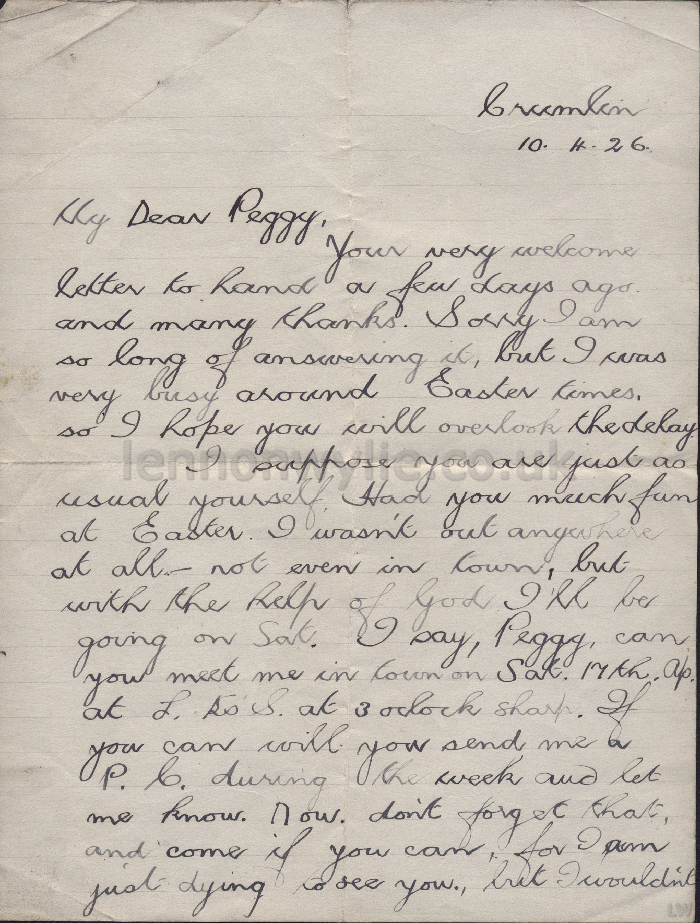 Crumlin
10. 4. 26.
My Dear Peggy,
Your very welcome
letter to hand a few days ago.
and many thanks. Sorry I am
so long of answering it, but I was
very busy around Easter times,
so I hope you will overlook the delay
I suppose you are just as
usual yourself. Had you much fun
at Easter. I wasn't out anywhere
at all — not even in town, but
with the help of God I'll be
going on Sat. I say, Peggy, can
you meet me in town on Sat. 17th. Ap.
at L. & S. at 3 oclock sharp. If
you can will you send me a
P. C. during the week and let
me know. Now. don't forget that,
and come if you can, for I am
just dying to see you., but I wouldn't
lennonwylie.co.uk